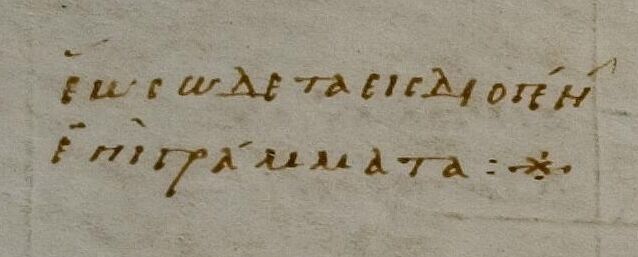 ἕως ὧδε τα εις διογένη
ἐπιγράμματα : ※